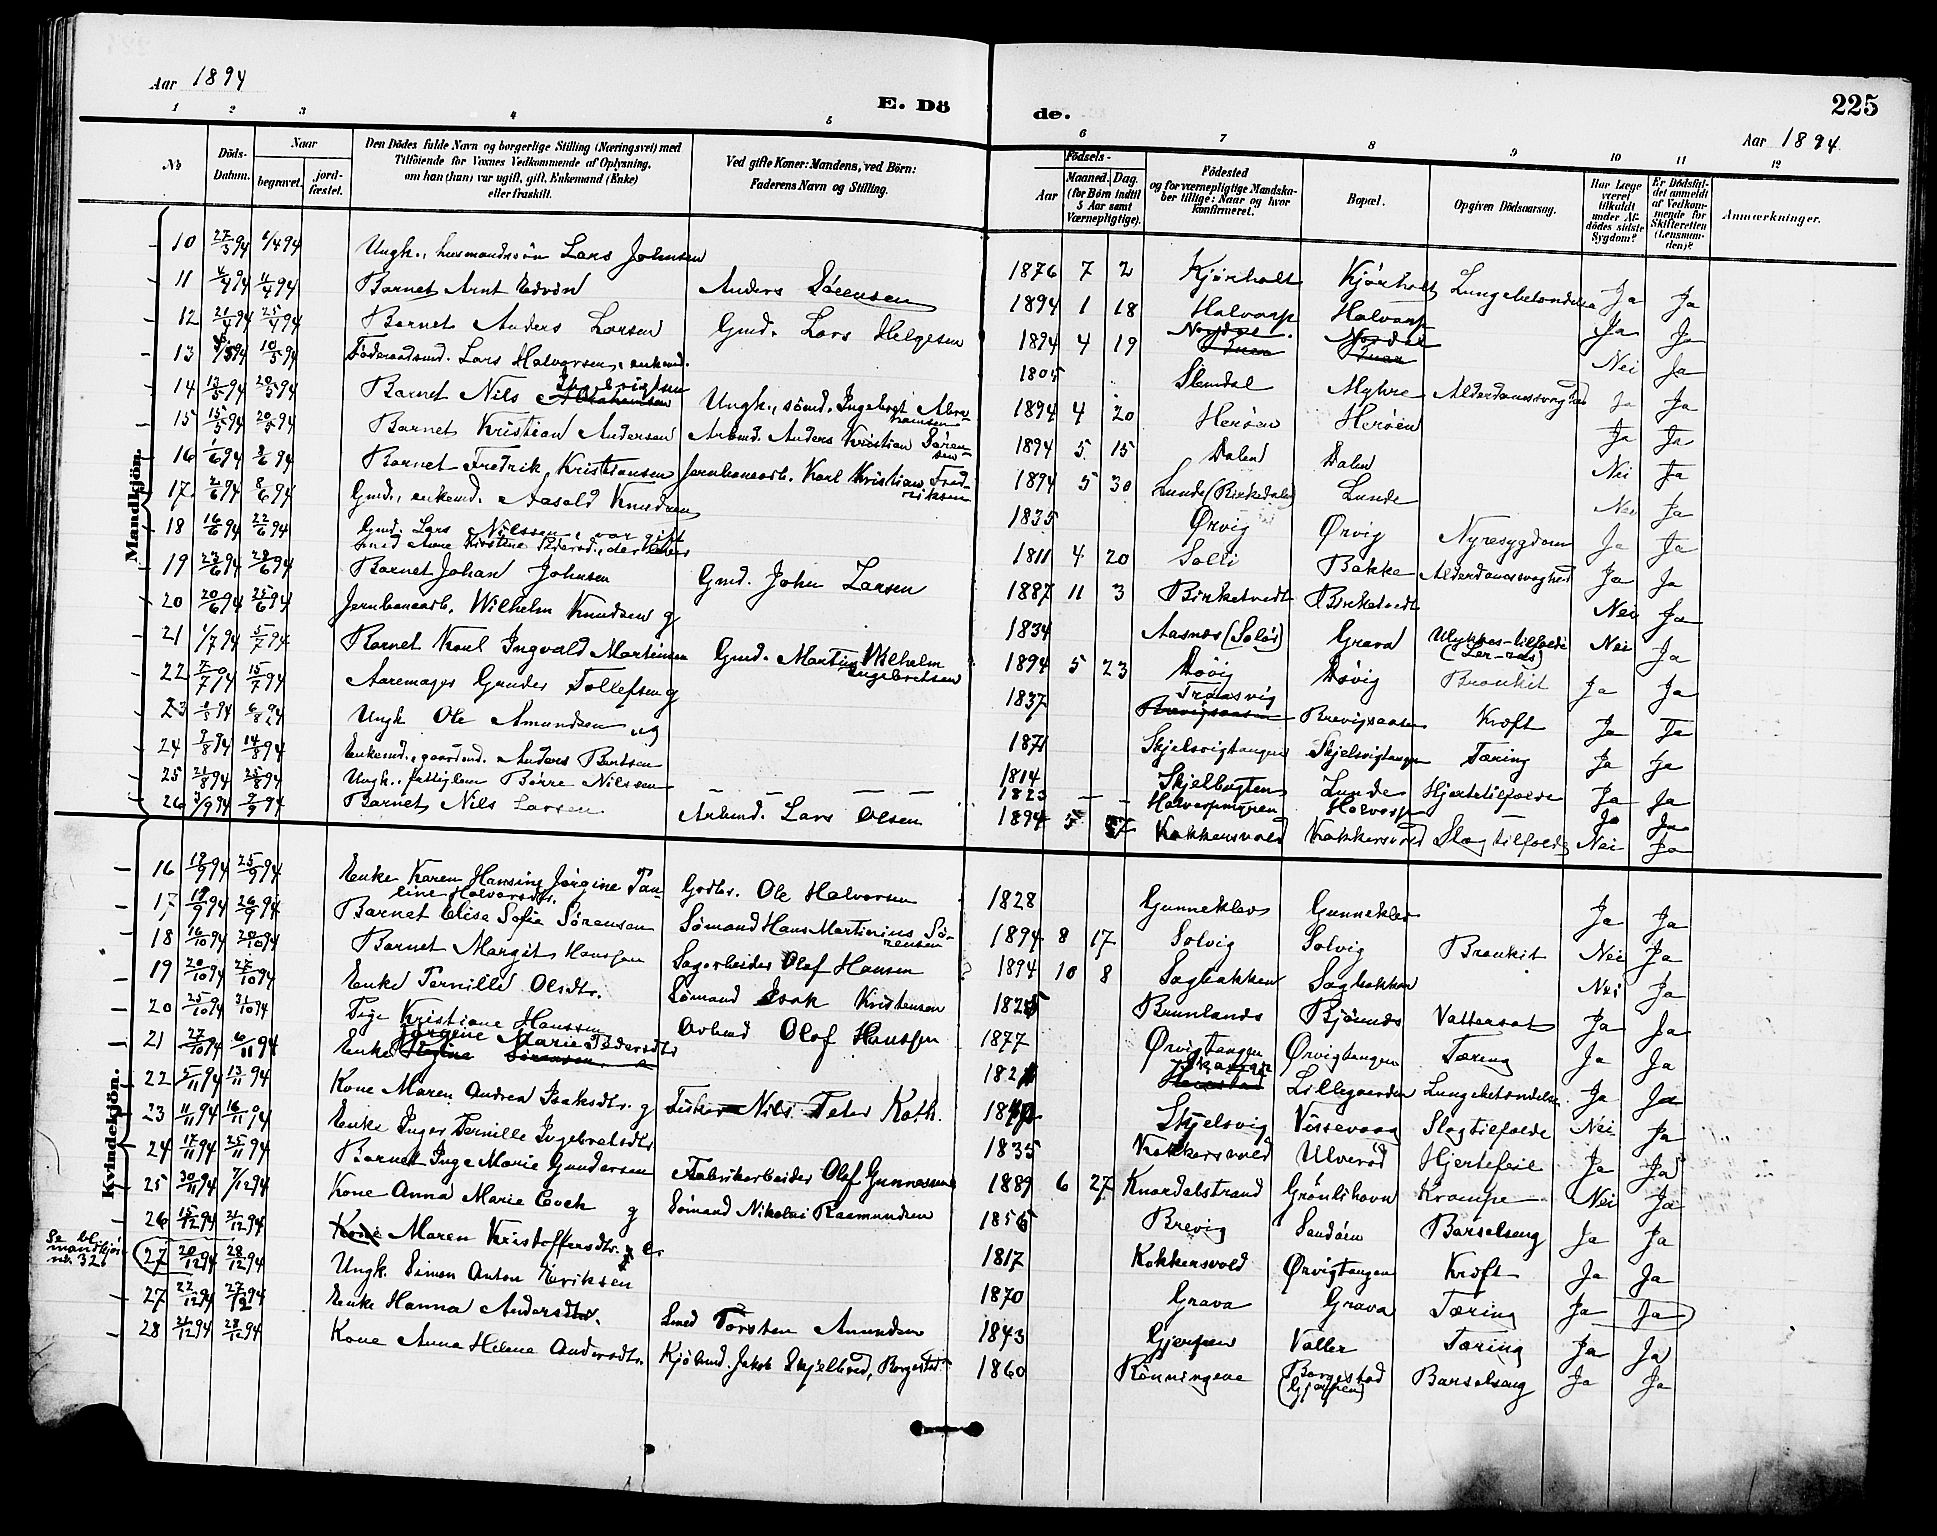 Aar 1894
E. Dö
de.
225
Aar 1894.
1 2 3 4 5 6 7 8 9 10 11 12
No
Döds-Datum.
Naar
begravet.
jord-fæstet.
Den Dödes fulde Navn og borgerlige Stilling (Næringsvei) med
Tilföiende for Voxnes Vedkommende af Oplysning,
om han (hun) var ugift, gift, Enkemand (Enke)
eller fraskilt.
Ved gifte Koner: Mandens, ved Börn:
Faderens Navn og Stilling.
Födsels-
Aar
Maaned. Dag.
(for Börn indtil
5 Aar samt
Værnepligtige).
Födested
og for værnepligtige Mandska-
ber tillige: Naar og hvor
konfirmeret.
Bopæl.
Opgiven Dödsaarsag.
Har Læge
været
tilkaldt
under Af-
dödes sidste
Sygdom?
Er Dödsfal-
det anmeldt
af Vedkom-
mende for
Skifteretten
(Lensman-
den)?
Anmærkninger.
Mandkjön.
10 27/3 94 1/4 94 Ungk., husmandssön Lars Johnsen 1876 7 2 Kjørholt Kjørholt Lungebetændelse Ja Ja
11 4/4 94 11/4 94 Barnet Arnt Edvin Anders Sørensen 1894 1 18 Halvarp Halvarp Ja Ja
12 21/4 94 25/4 94 Barnet Anders Larsen Gmd. Lars Helgesen 1894 4 19 Nei Ja
13 1/5 94 10/5 94 Føderaadsmd. Lars Halvorsen, enkemd. 1805 Slemdal Myhre Alderdomssvaghed Ja Ja
14 13/5 94 20/5 94 Barnet Nils Ingebrigtsen Ungk., sømd. Ingebrigt Abra-
hamsen 1894 4 20 Herøen Herøen Ja Ja
15 15/5 94 20/5 94 Barnet Kristian Andersen Arbmd. Anders Kristian Søren-
sen 1894 5 15 Dalen Dalen Nei Ja
16 1/6 94 3/6 94 Barnet Fredrik Kristiansen Jernbanearb. Karl Kristian Fred-
riksen 1894 5 30 Lunde (Birkedalen) Lunde Nei Ja
17 2/6 94 8/6 94 Gmd., enkemd. Aasold Knudsen 1835 Ørvig Ørvig Nyresygdom Ja Ja
18 16/6 94 22/6 94 Gmd. Lars Nilssen, var gift
med Anne Kirstine Pedersd., der lever 1811 4 20 Solli Bakke Alderdomssvaghed Ja Ja
19 23/6 94 28/6 94 Barnet Johan Johnsen Gmd. John Larsen 1887 11 3 Birketvedt Birketvedt Nei Ja
20 20/6 94 25/6 94 Jernbanearb. Wilhelm Knudsen g 1834 Aasnes (Solør) Grava Ulykkes-tilfælde
(Ler-ras) Nei Ja
21 1/7 94 5/7 94 Barnet Karl Ingvald Martinsen Gmd. Martin Wilhelm
Ingebretsen 1894 5 23 Døvig Døvig Bronkit Ja Ja
22 7/7 94 15/7 94 Aaremager Gunder Tollefsen g 1837 Trosvig Brevigsaasen Kræft Ja Ja
23 94 6/8 94 Ungk Ole Amundsen ug 1871 Skjelsvigtangen Skjelsvigtangen Tæring Ja Ja
24 9/8 94 14/8 94 Enkemd., gaardmd. Anders Bertsen 1814 Skjelbugten Lunde Hjertetilfælde Ja Ja
25 21/8 94 25/8 94 Ungk., fattiglem Børre Nilssen — — — — — 1823 — — Halvarpmyren Halvarp Ja Ja
26 3/9 94 9/9 94 Barnet Nils Larsen Arbmd. Lars Olsen 1894 5 27 Kokkersvold Kokkersvold Slagtilfælde Nei Ja
Kvindekjön.
16 19/9 94 25/9 94 Enke Karen Hansine Jørgine Pau-
line Halvorsdtr. Godtbr. Ole Halvorsen 1828 Gunneklev Gunneklev Ja Ja
17 19/9 94 26/9 94 Barnet Elise Sofie Sørensen Sømand Hans Martinius Sø-
rensen 1894 8 17 Solvig Solvig Bronkit Nei Ja
18 16/10 94 20/10 94 Barnet Margit Hanssen Sagarbeider Olaf Hansen 1894 10 8 Sagbakken Sagbakken Nei Ja
19 20/10 94 27/10 94 Enke Pernille Olsdtr. Sømand Isak Kristensen 1825 Brunlanæs Bjønnes Vattersot Ja Ja
20 25/10 94 31/10 94 Pige Kristiane Hanssen Arbmd Olaf Hanssen 1877 Ørvigtangen Ørvigtangen Tæring Ja Ja
21 27/10 94 6/11 94 Enke Jørgine Marie Pedersdtr Lillegaarden Lungebetændelse Ja Ja
22 5/11 94 13/11 94 Kone Maren Andrea Isaksdtr. g Fisker Nils Peter Koth. Skjelsvig Vissevaag Slagtilfælde Nei Ja
23 11/11 94 16/11 94 Enke Inger Pernille Ingebretsdtr 1835 Kokkersvold Ulverød Hjertefeil Ja Ja
24 17/11 94 25/11 94 Barnet Inge Marie Gundersen Fabrikarbeider Olaf Gunnersen 1889 6 27 Knardalstrand Grønlihavn Krampe Nei Ja
25 30/11 94 7/12 94 Kone Anna Marie Coch g Sømand Nikolai Rasmundsen 1856 Brevig Sandøen Barselseng Ja Ja
26 15/12 94 21/12 94 Kone Maren Kristoffersdtr. e. 1817 Kokkersvold Ørvigtangen Kræft Ja Ja
Se bl.
mandkjøn
nr. 32
27 20/12 94 28/12 94 Ungk. Simen Anton Eriksen 1870 Grava Grava Tæring Ja Ja
27 22/12 94 27/12 94 Enke Hanna Andersdtr. Smed Torsten Amundsen 1843 Gjerpen Valler Tæring Ja Ja
28 21/12 94 28/12 94 Kone Anna Helene Andersdtr. Kjøbmd. Jakob Skjelbred, Borgestad 1860 Rønningene Borgestad
(Gjerpen) Barselseng Ja Ja